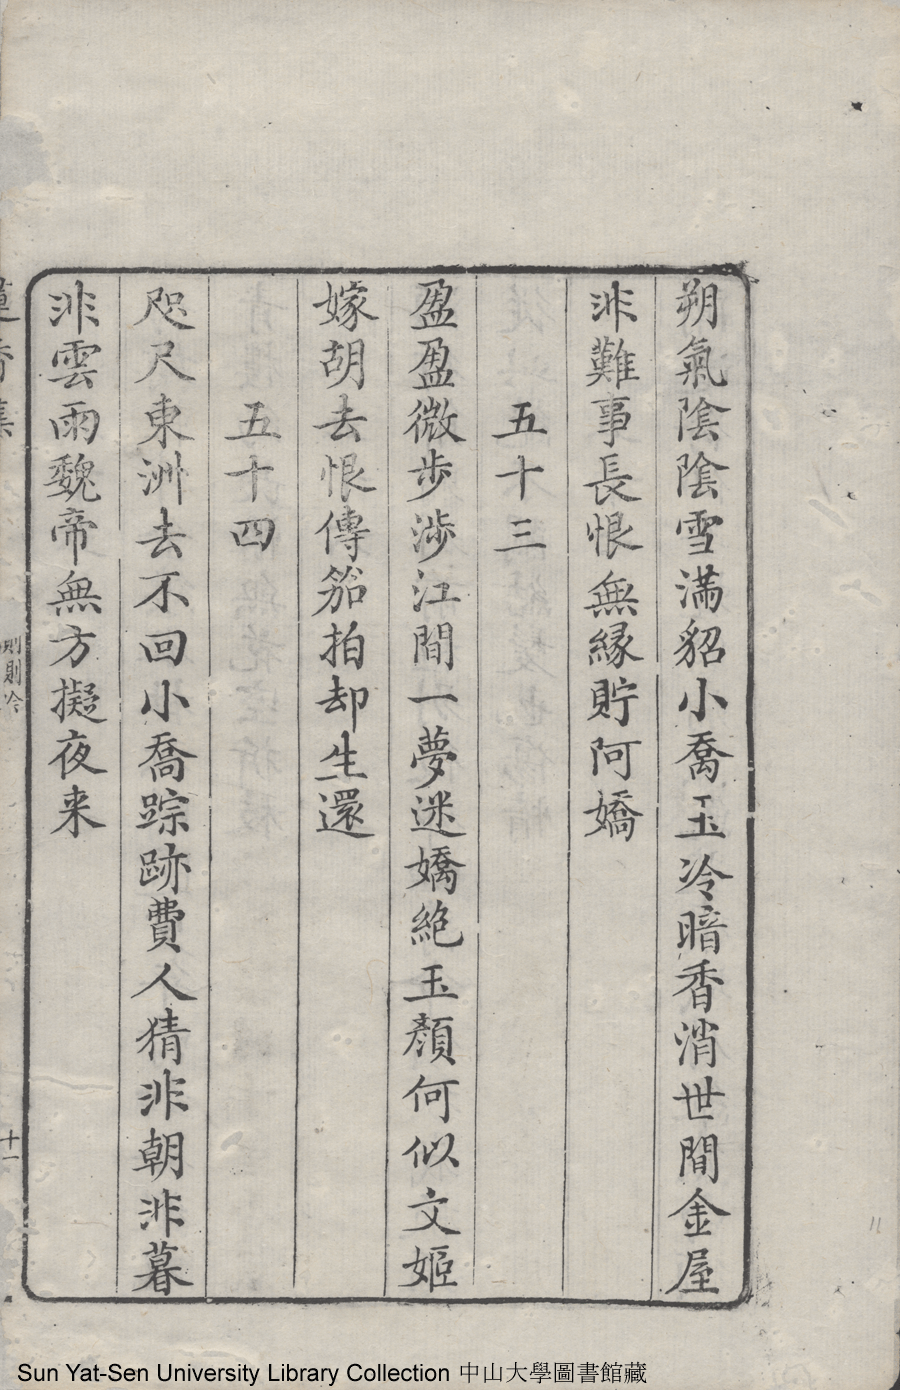 朔氣陰陰雪滿貂小喬玉冷暗香消世間金屋
非難事長恨無緣貯阿嬌
五十三
盈盈微步涉江間一夢迷嬌絶玉顏何似文姬
嫁胡去恨傳笳拍却生還
五十四
咫尺東洲去不回小喬踪跡費人猜非朝非暮
非雲雨魏帝無方擬夜来
香集
則則冷
十一
11
Sun Yat-Sen University Library Collection 中山大學圖書館藏